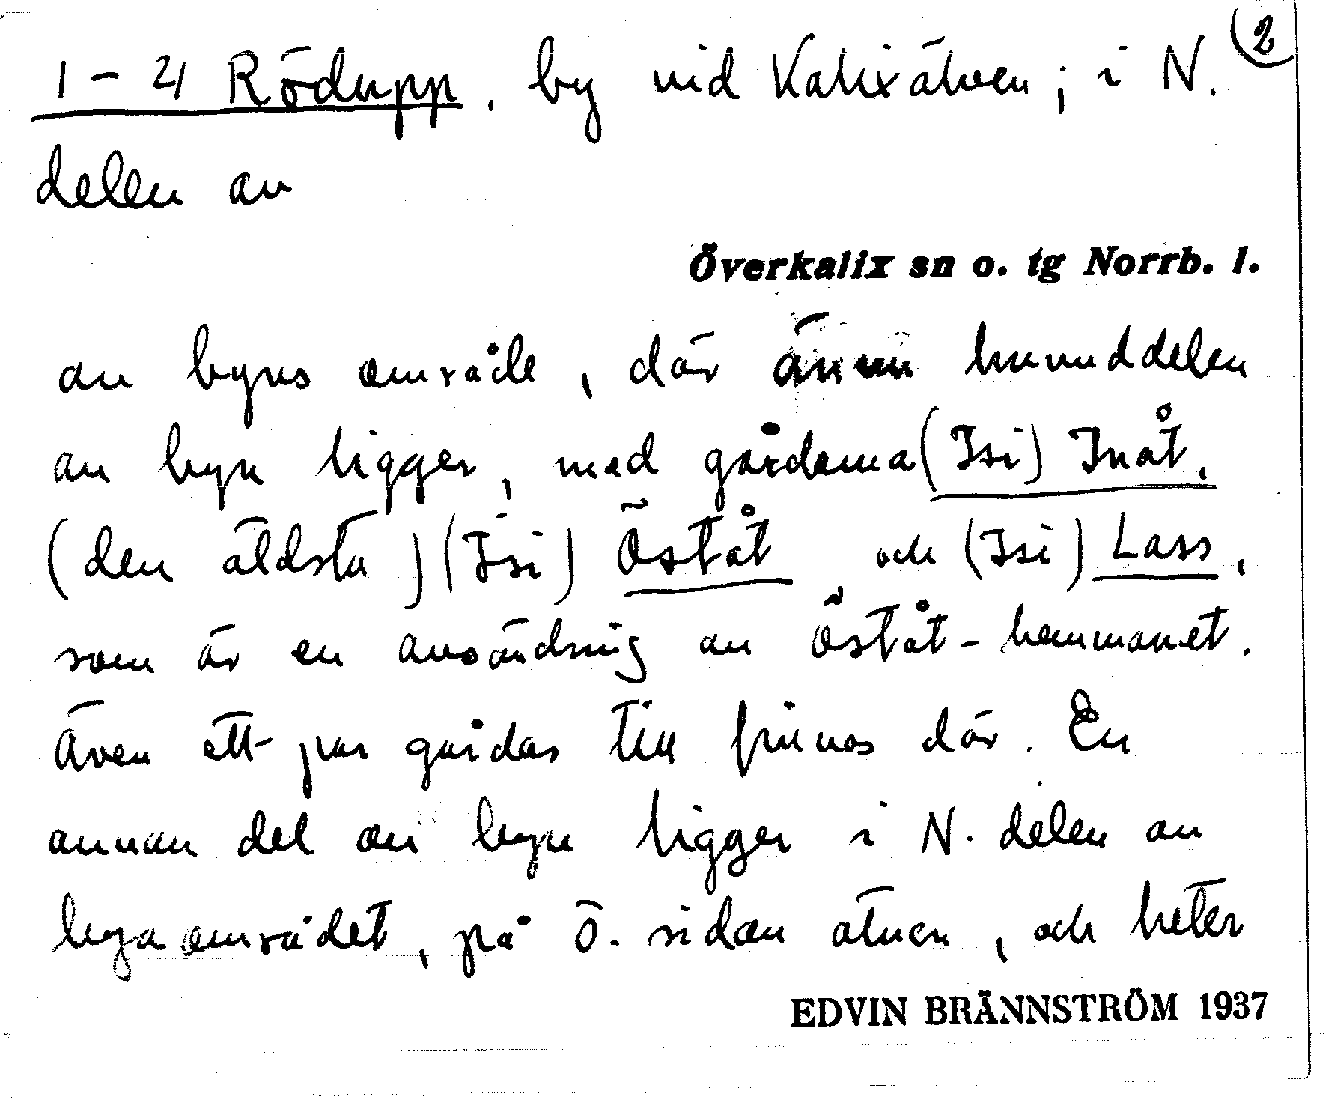 2
1 – 4 Rödupp, by vid Kalixälven; i N.
delen av
Överkalix sn o. tg Norrb. l.
av byns område, där ännu huvuddelen
av byn ligger, med gårdarna (Isi) Inåt,
(den äldsta) (Isi) Öståt och (Isi) Lass,
som är en avsöndring av Öståt-hemmanet.
Även ett par gårdar till finnas där. En
annan del av byn ligger i N. delen av
byaområdet, på ö. sidan älven, och heter
EDVIN BRÄNNSTRÖM 1937